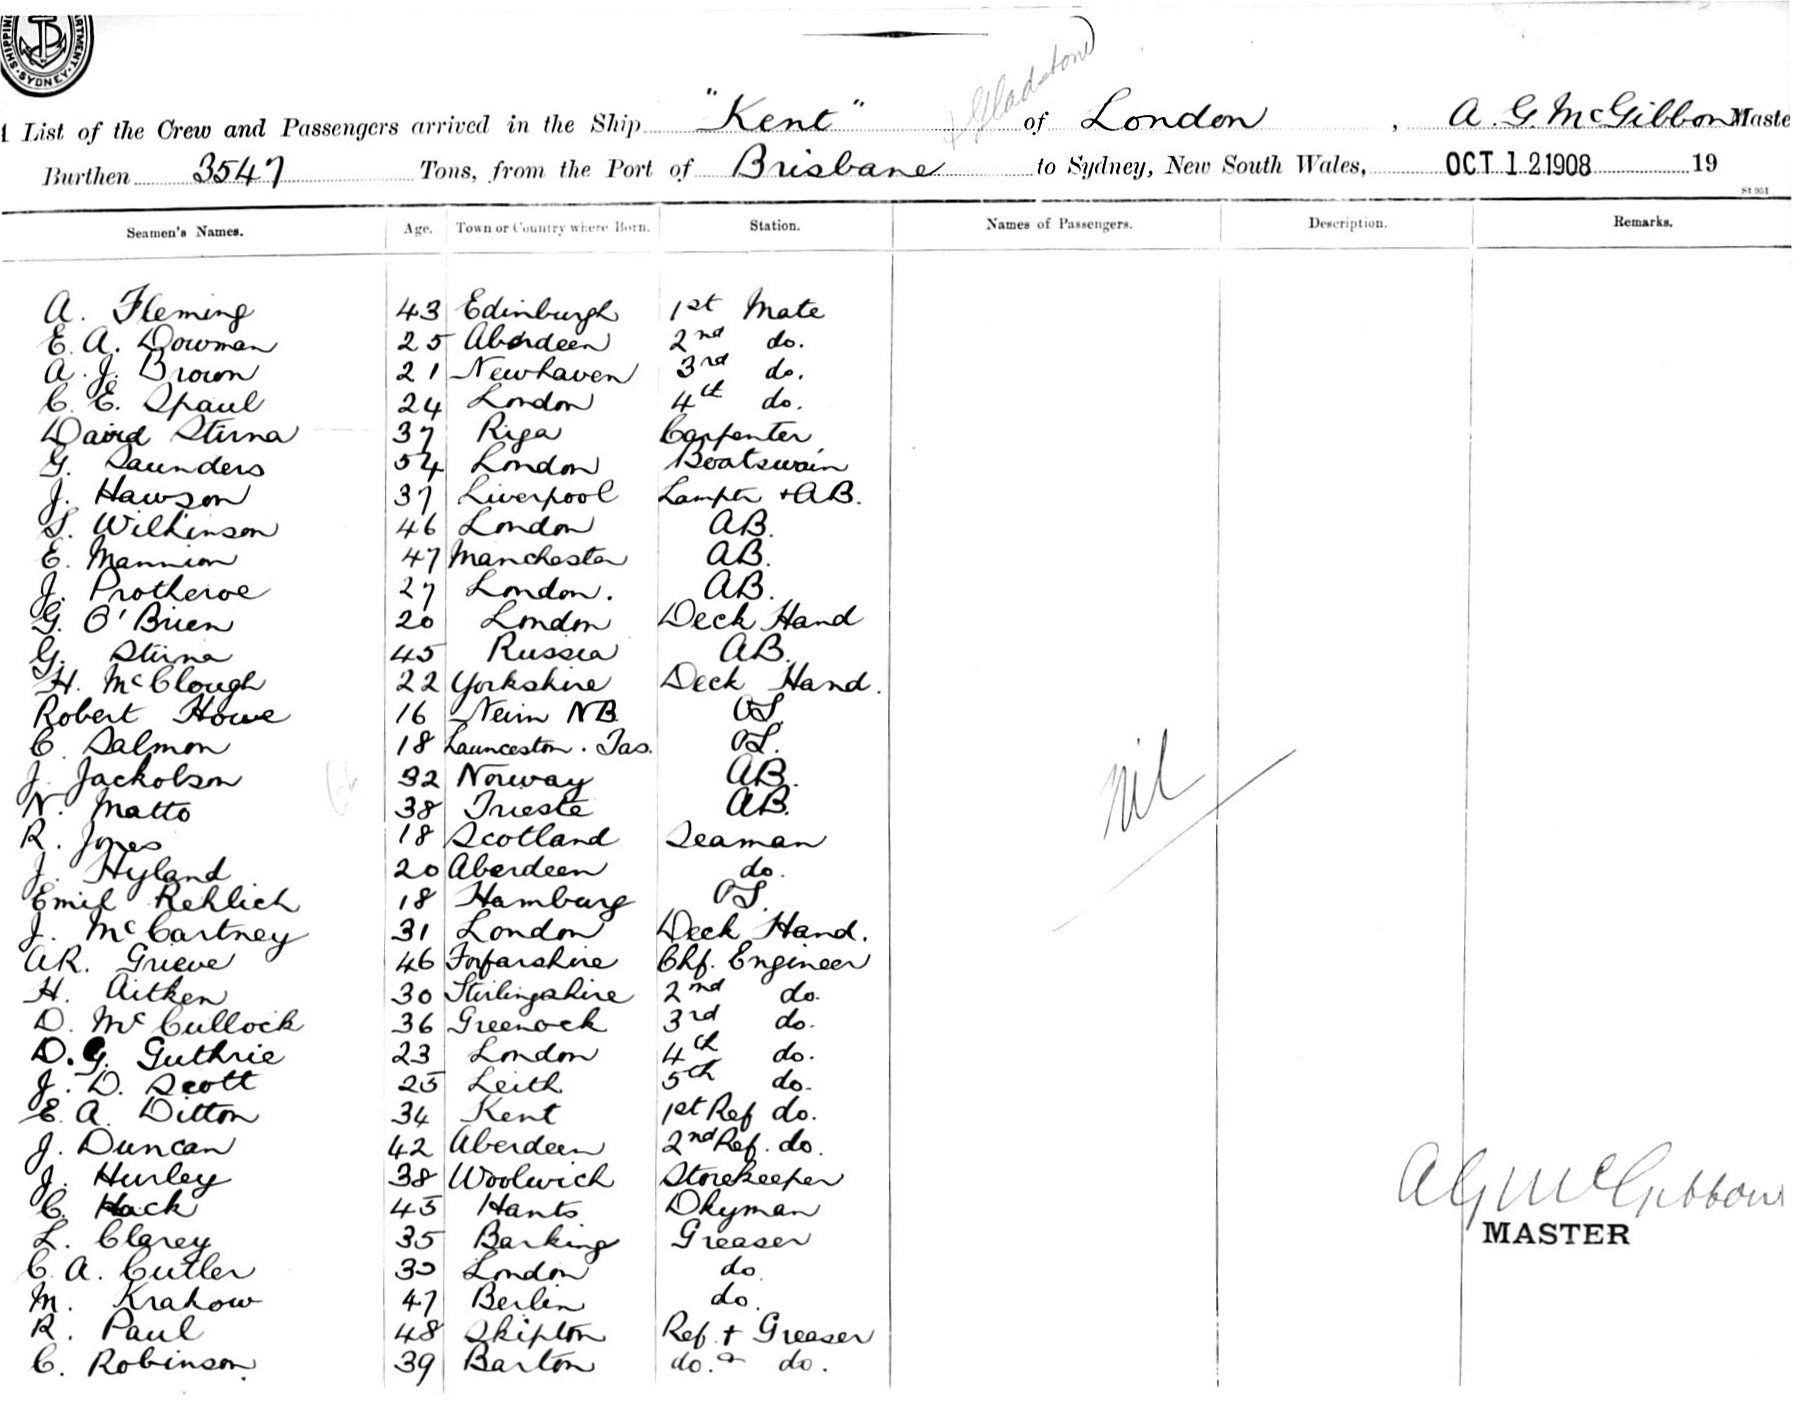 SHIPPING DEPARTMENT. SYDNEY.
& Gladstone
List of the Crew and Passengers arrived in the Ship "Kent" of London, A. G. McGibbon Maste
Burthen 3547 Tons, from the Port of Brisbane to Sydney, New South Wales, OCT 12 1908 19
St 951
Seamen's Names. Age. Town or Country where Born. Station. Names of Passengers. Description. Remarks.
A. Fleming 43 Edinburgh 1st Mate
E. A. Dowman 25 Aberdeen 2nd do.
A. J. Brown 21 Newhaven 3rd do.
C. E. Spaul 24 London 4th do.
David Stirna 37 Riga Carpenter
G. Saunders 54 London Boatswain
J. Hawson 37 Liverpool Lamptr + AB.
S. Wilkinson 46 London AB.
E. Mannion 47 Manchester AB.
J. Protheroe 27 London. AB.
G. O'Brien 20 London Deck Hand
G. Stirna 45 Russia AB.
H. McClough 22 Yorkshire Deck Hand.
Robert Howe 16 Neirn NB. OS.
C. Salmon 18 Launceston. Tas. OS.
J. Jackobson 32 Norway AB.
N. Matto 38 Trieste AB.
R. Jones 18 Scotland Seaman
Nil
J. Hyland 20 Aberdeen do.
Emil Rehlich 18 Hamburg OS.
J. McCartney 31 London Deck Hand.
AR. Grieve 46 Forfarshire Chf. Engineer
H. Aitken 30 Stirlingshire 2nd do.
D. McCullock 36 Greenock 3rd do.
D. G. Guthrie 23 London 4th do.
J. D. Scott 25 Leith 5th do.
E. A. Ditton 34 Kent 1st Ref do.
J. Duncan 42 Aberdeen 2nd Ref. do.
J. Hurley 38 Woolwich Storekeeper
A G McGibbon
C. Hack 45 Hants Dkyman
MASTER
L. Clarey 35 Barking Greaser
C. A. Cutler 30 London do.
M. Krakow 47 Berlin do.
R. Paul 48 Skipton Ref. + Greaser
C. Robinson. 39 Barton do. & do.